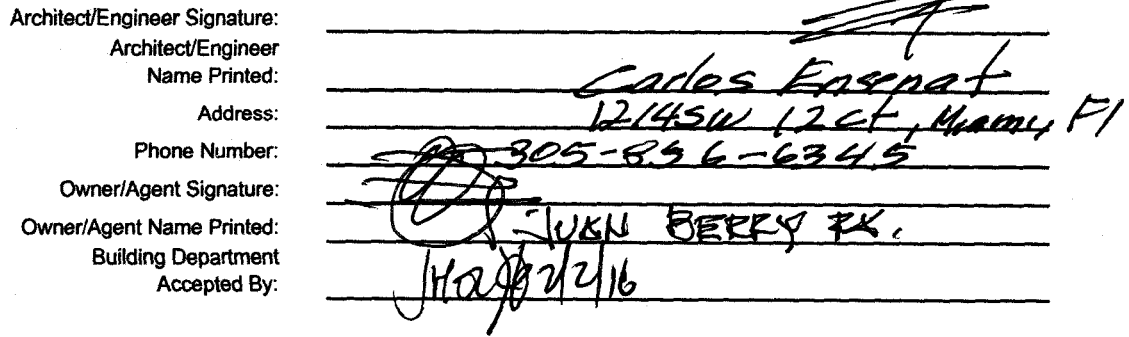 Architect/Engineer Signature:
Architect/Engineer
Name Printed: Carlos Ensenat
Address: 1214 SW 12 Ct, Miami, Fl
Phone Number: 305-896-6345
Owner/Agent Signature:
Owner/Agent Name Printed: JUAN BERRY
Building Department
Accepted By: 2/2/16